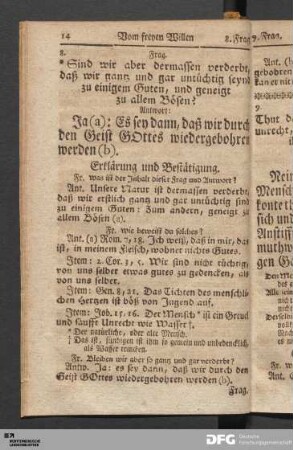 14 Vom freyen Willen 8. Frag
8. Frag.
*Sind wir aber dermassen verderbt,
daß wir gantz und gar untüchtig seynd
zu einigem Guten, und geneigt
zu allem Bösen?
Antwort:
Ja (a): Es sey dann, daß wir durch
den Geist GOttes wiedergebohren
werden (b).
Erklärung und Bestätigung.
Fr. Was ist der Inhalt dieser Frag und Antwort?
Ant. Unsere Natur ist dermassen verderbt,
daß wir erstlich gantz und gar untüchtig sind
zu einigem Guten: Zum andern, geneigt zu
allem Bösen (a).
Fr. Wie beweist du solches?
Ant. (a) Rom. 7, 18. Ich weiß, daß in mir, das
ist, in meinem Fleisch, wohnet nichts Gutes.
Item: 2. Cor. 3, 5. Wir sind nicht tüchtig, von
uns selber etwas gutes zu gedencken, als von
uns selber.
Item: Gen. 8, 21. Das Tichten des menschlichen
Hertzen ist böß von Jugend auf.
Item: Job. 15. 16. Der Mensch * ist ein Greuel
und saufft Unrecht wie Wasser †.
* Der natürliche, oder alte Mensch.
† Das ist, sündigen ist ihm so gemein und unbedencklich,
als Wasser trincken.
Fr. Bleiben wir aber so gantz und gar verderbt?
Antw. Ja: es sey dann, daß wir durch den
Geist GOttes wiedergebohren werden (b).
Frag.
DFG
Deutsche
Forschungsgemeinschaft